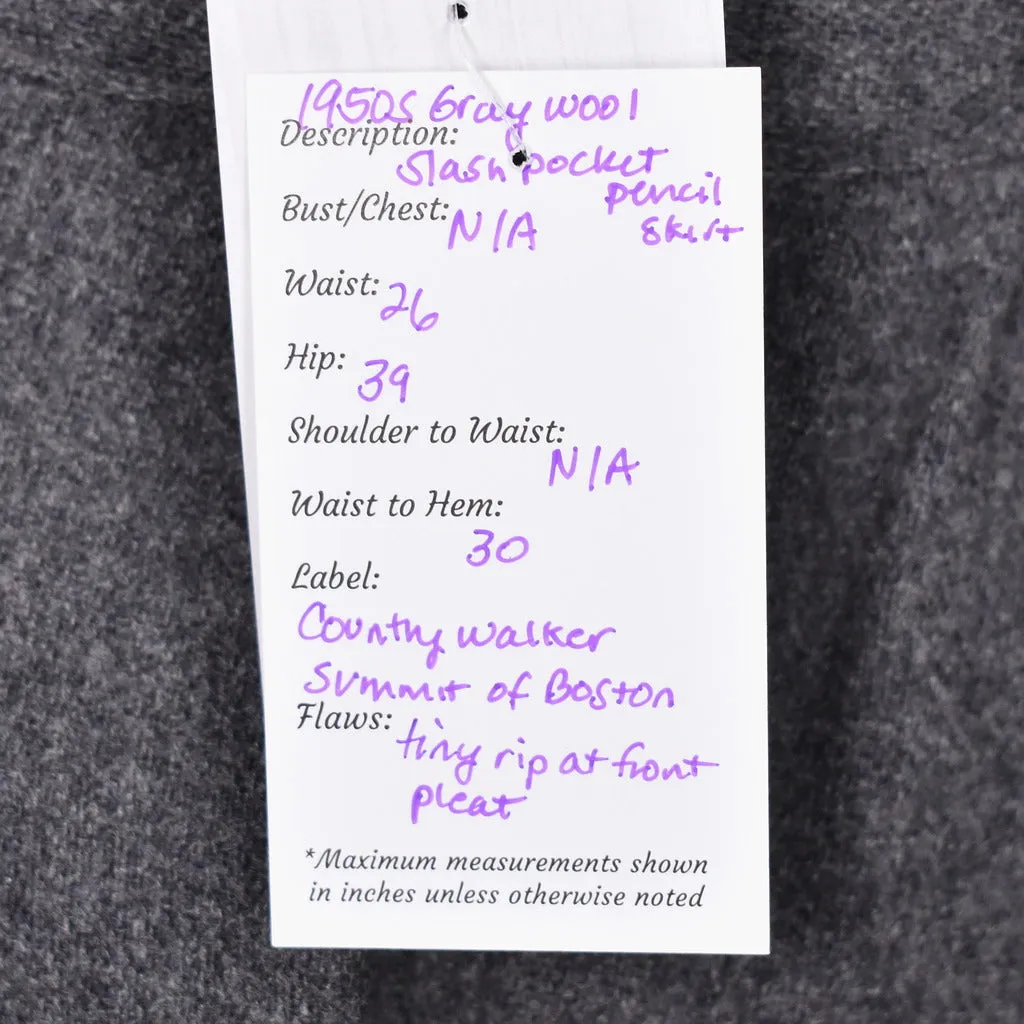 1950s Gray wool
Description:
slash pocket
pencil
skirt
Bust/Chest: N/A
Waist: 26
Hip: 39
Shoulder to Waist:
N/A
Waist to Hem:
30
Label:
Country walker
Summit of Boston
Flaws: tiny rip at front
pleat
*Maximum measurements shown
in inches unless otherwise noted